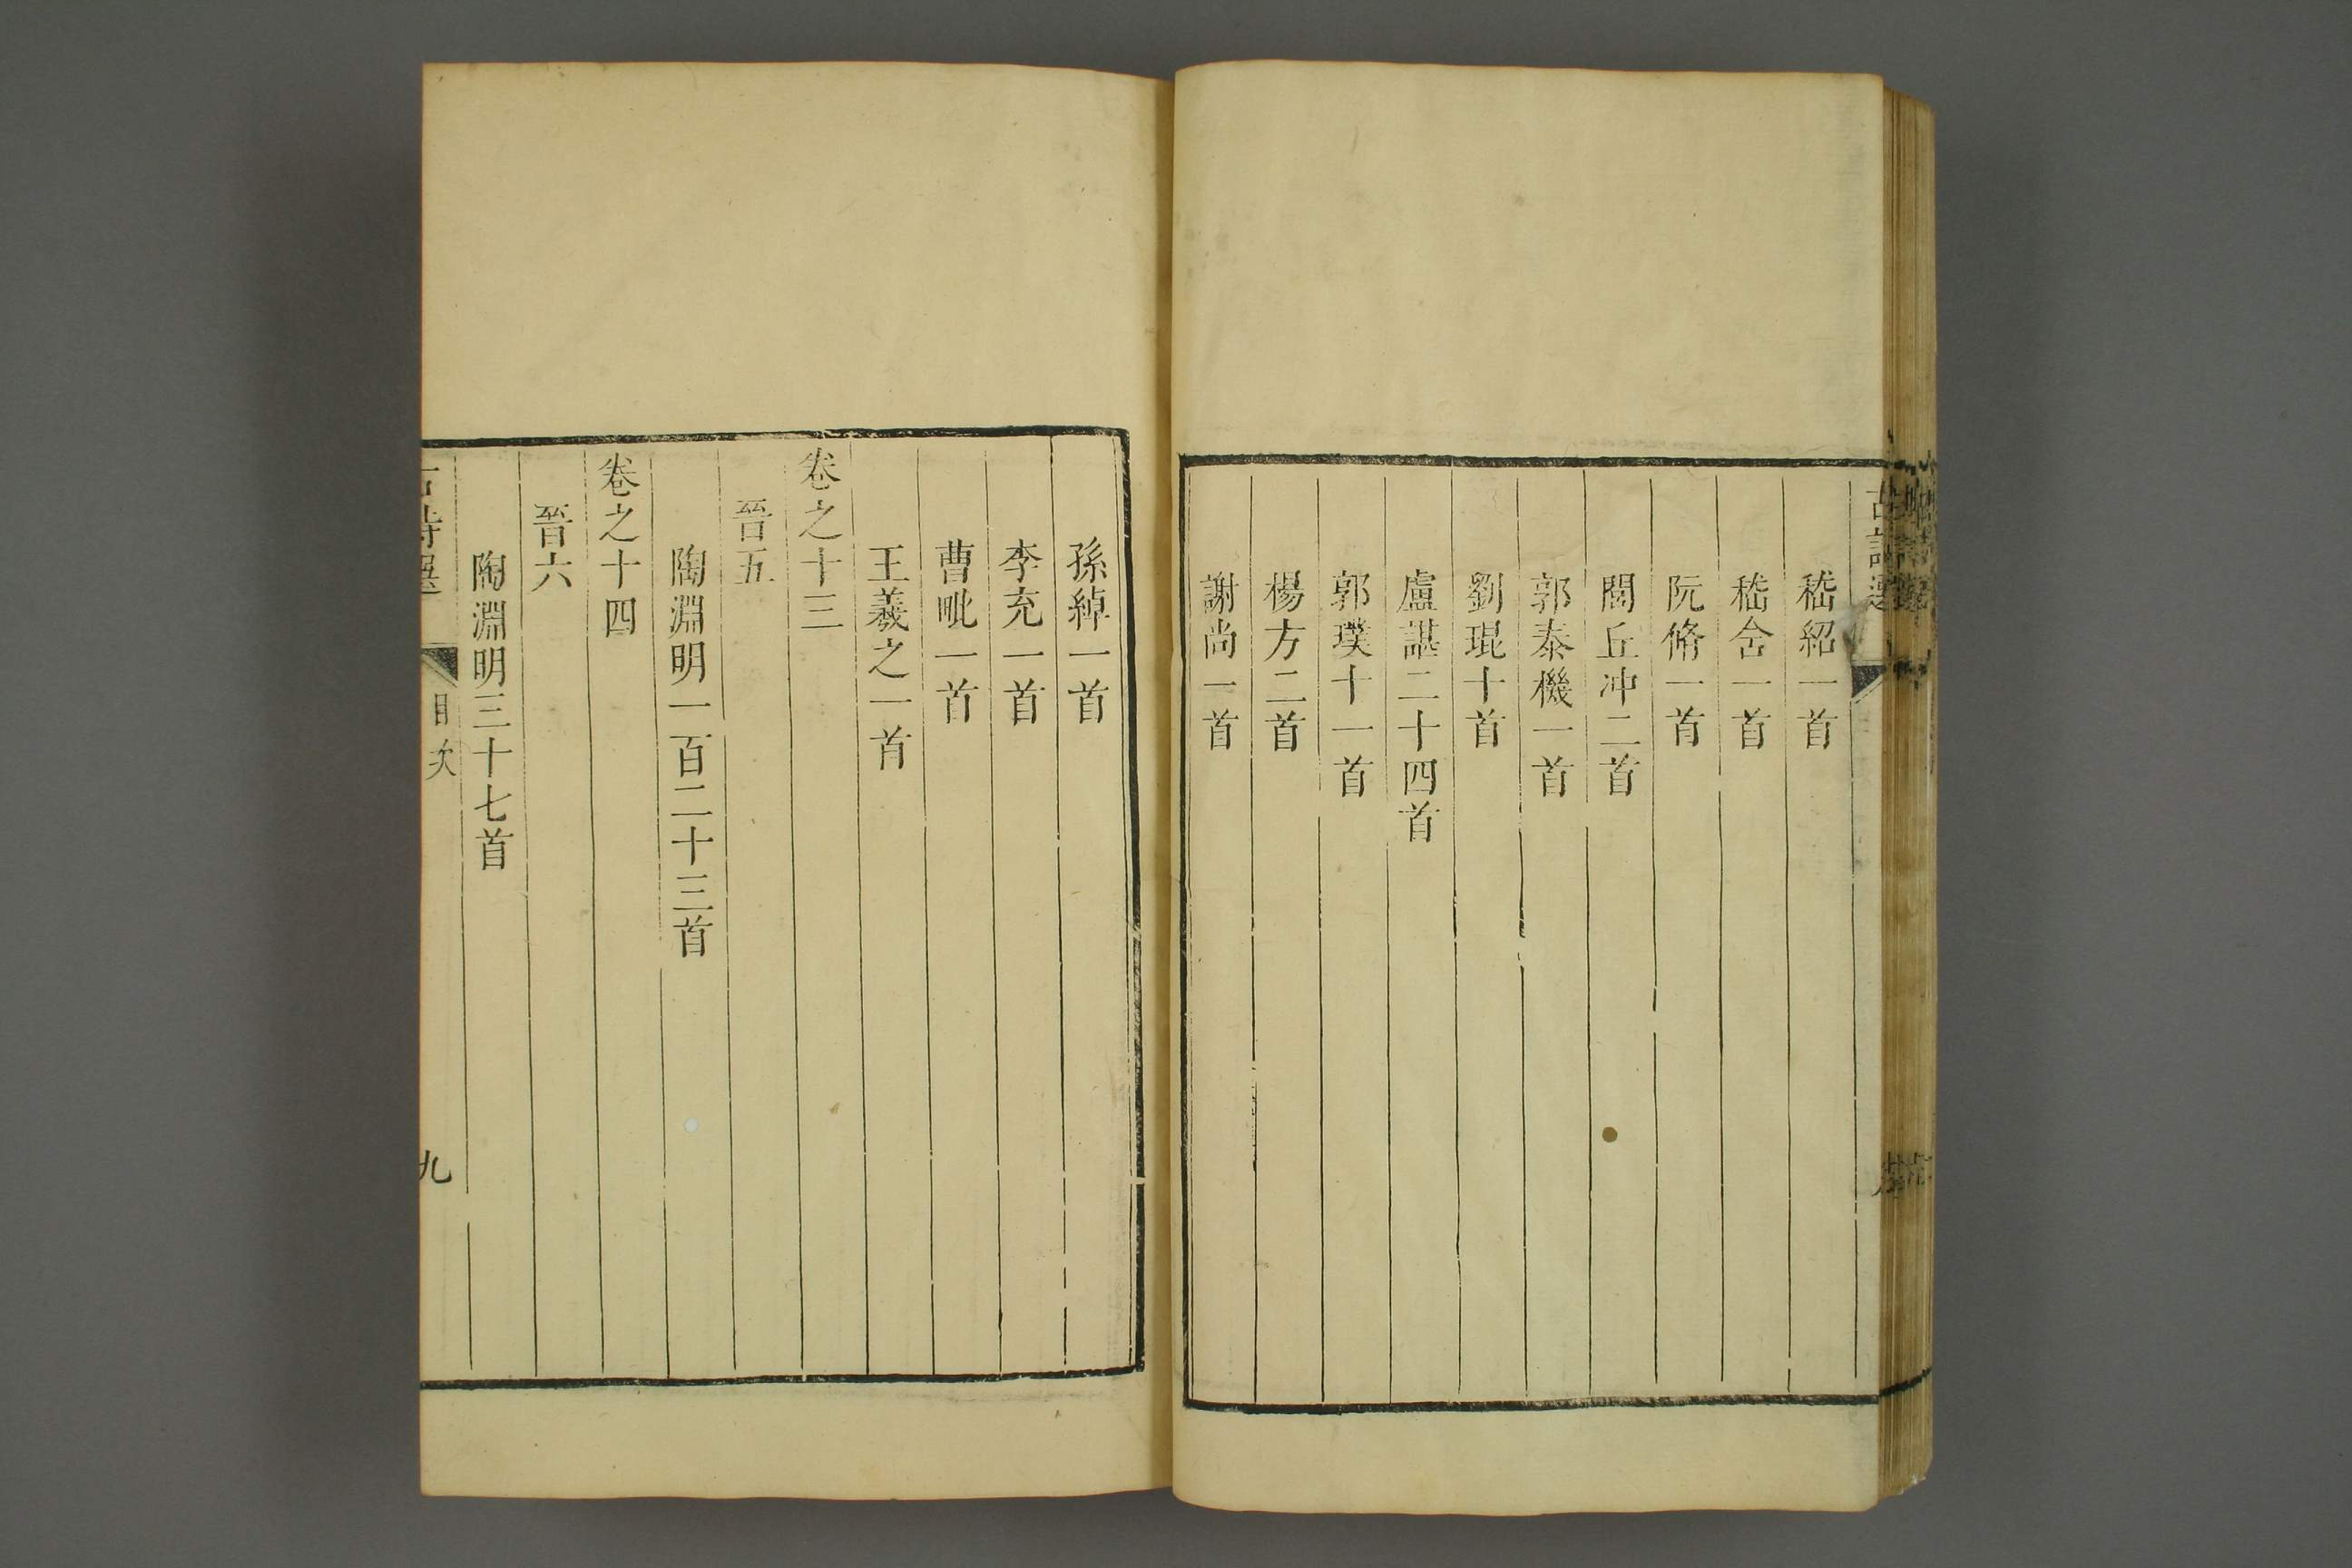 嵇紹一首
嵇含一首
阮脩一首
閭丘冲二首
郭泰機一首
劉琨十首
盧諶二十四首
郭璞十一首
楊方二首
謝尚一首
孫綽一首
李充一首
曹毗一首
王羲之一首
卷之十三
晉五
陶淵明一百二十三首
卷之十四
晉六
陶淵明三十七首
目次
九